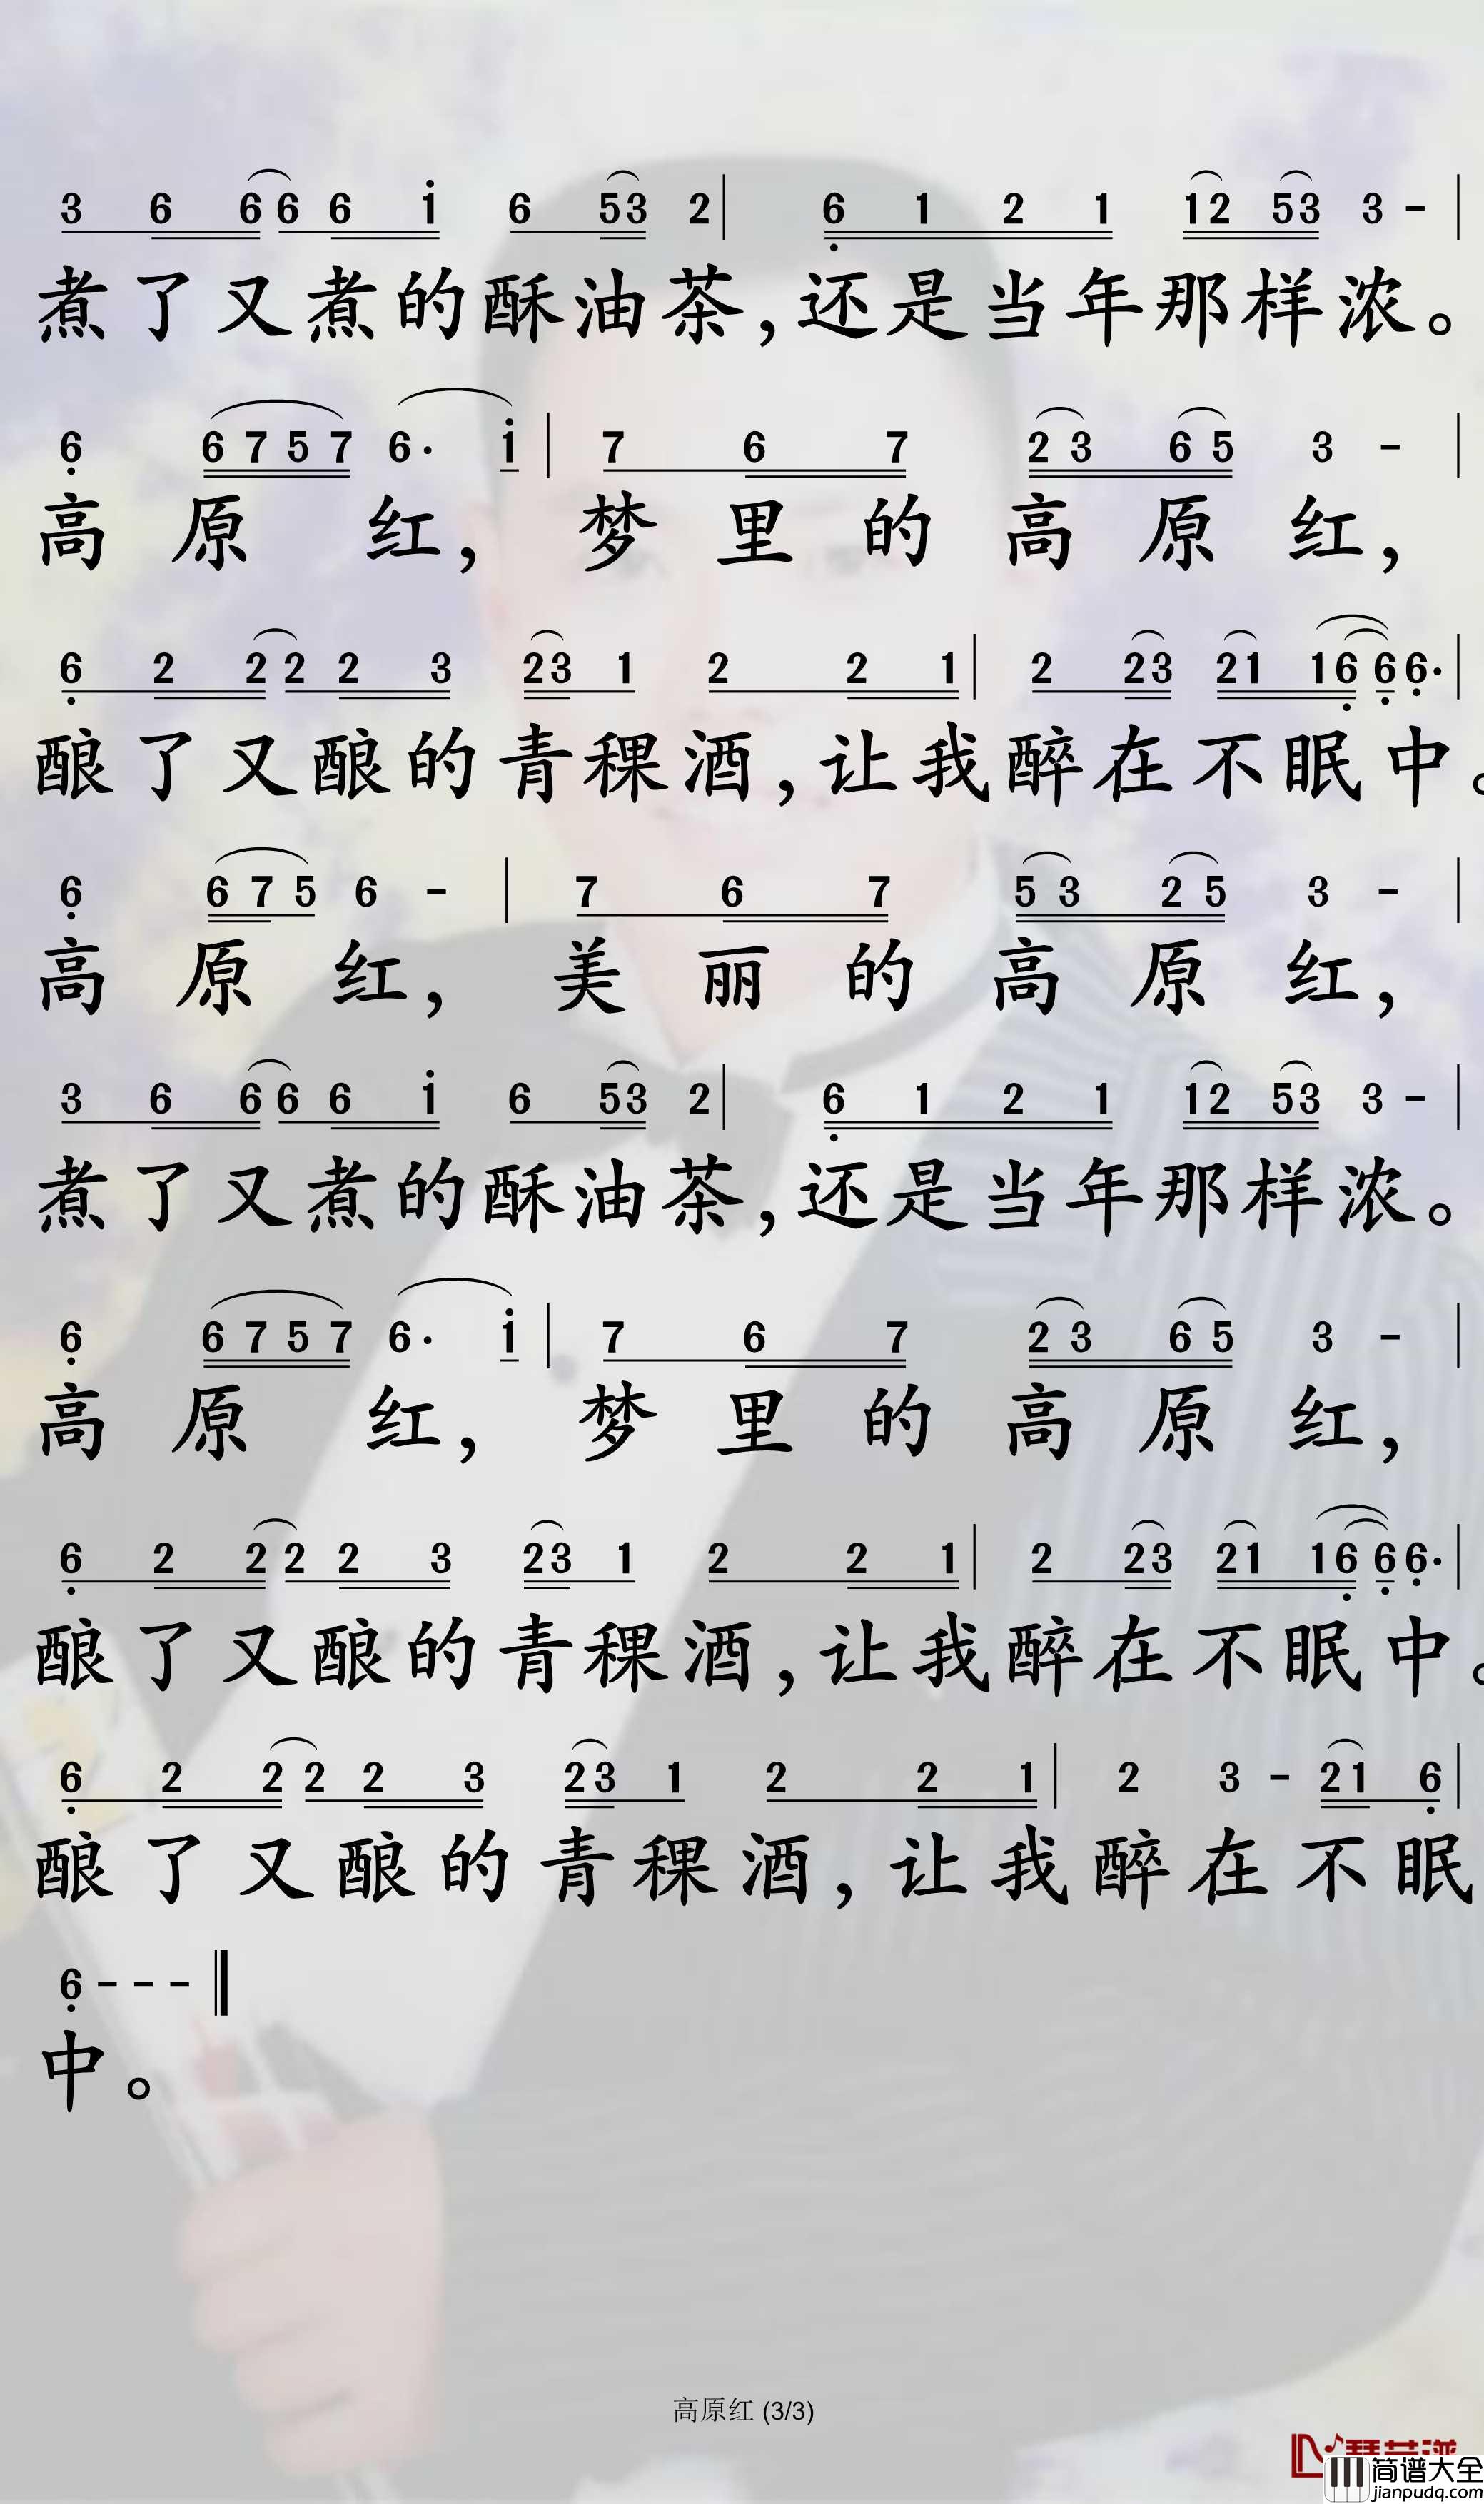 3 6 6 6 6 1 6 5 3 2 | 6 1 2 1 1 2 5 3 3 - |
煮了又煮的酥油茶,还是当年那样浓。
6 6 7 5 7 6· 1 | 7 6 7 2 3 6 5 3 - |
高原红,梦里的高原红,
6 2 2 2 2 3 2 3 1 2 2 1 | 2 2 3 2 1 1 6 6 6· |
酿了又酿的青稞酒,让我醉在不眠中。
6 6 7 5 6 - | 7 6 7 5 3 2 5 3 - |
高原红,美丽的高原红,
3 6 6 6 6 1 6 5 3 2 | 6 1 2 1 1 2 5 3 3 - |
煮了又煮的酥油茶,还是当年那样浓。
6 6 7 5 7 6· 1 | 7 6 7 2 3 6 5 3 - |
高原红,梦里的高原红,
6 2 2 2 2 3 2 3 1 2 2 1 | 2 2 3 2 1 1 6 6 6· |
酿了又酿的青稞酒,让我醉在不眠中。
6 2 2 2 2 3 2 3 1 2 2 1 | 2 3 - 2 1 6 |
酿了又酿的青稞酒,让我醉在不眠
6 - - - ‖
中。
高原红 (3/3)
简谱大全
jianpudq.com